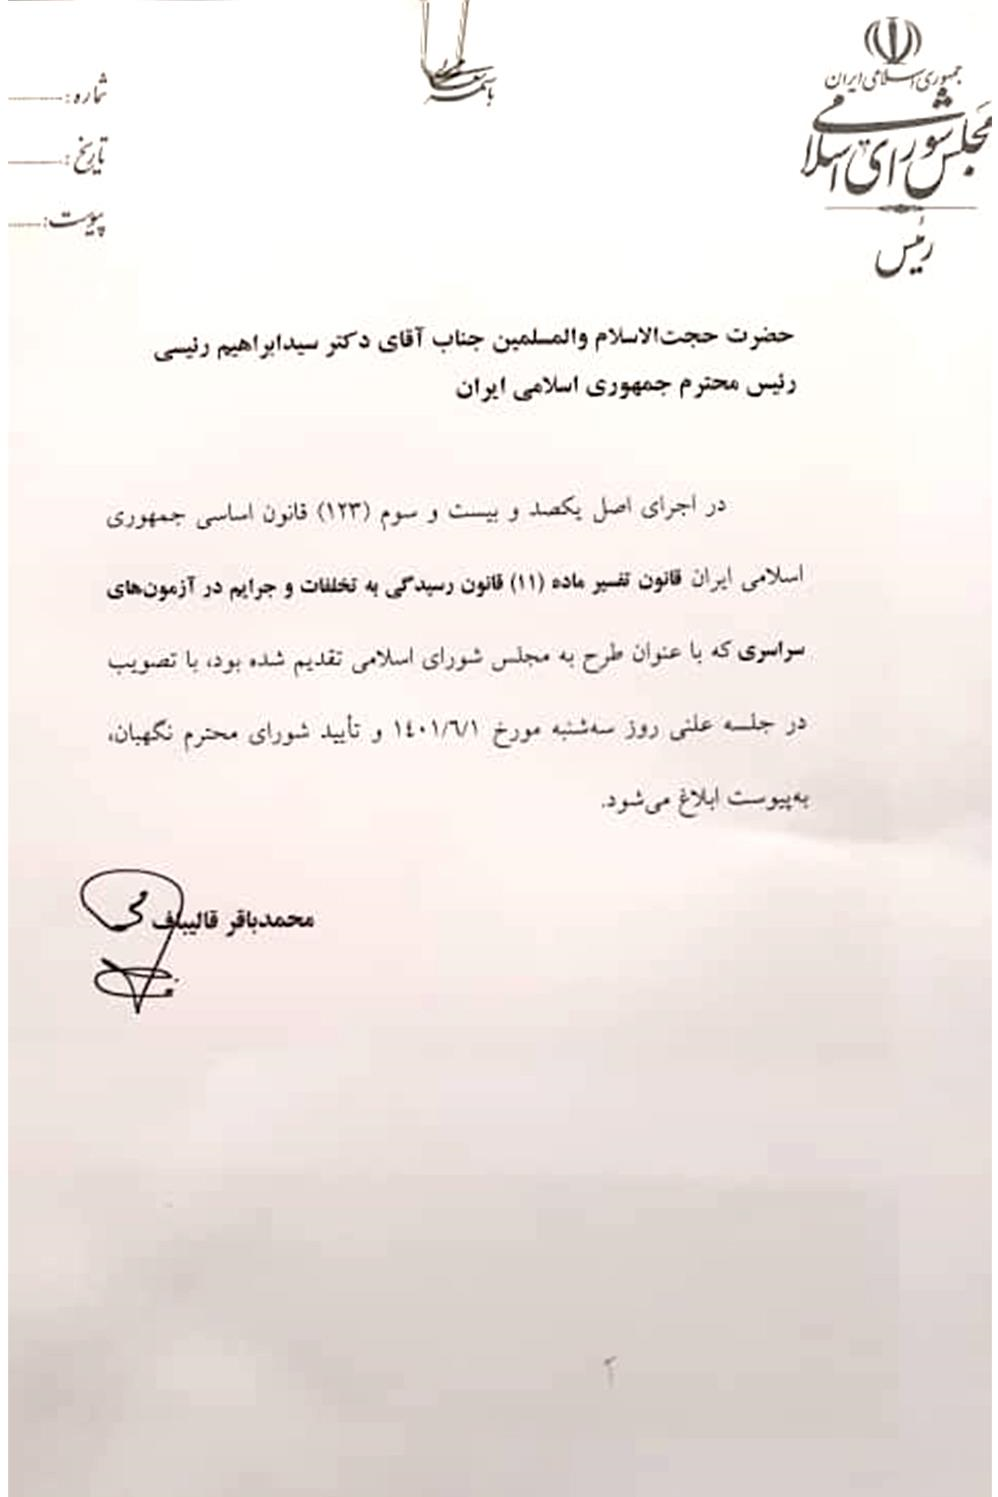 جمهوری اسلامی ایران
مجلس شورای اسلامی
رئیس
باسمه تعالی
شماره:
تاریخ:
پیوست:
حضرت حجت‌الاسلام والمسلمین جناب آقای دکتر سیدابراهیم رئیسی
رئیس محترم جمهوری اسلامی ایران
در اجرای اصل یکصد و بیست و سوم (۱۲۳) قانون اساسی جمهوری
اسلامی ایران قانون تفسیر ماده (۱۱) قانون رسیدگی به تخلفات و جرایم در آزمون‌های
سراسری که با عنوان طرح به مجلس شورای اسلامی تقدیم شده بود، با تصویب
در جلسه علنی روز سه‌شنبه مورخ ۱۴۰۱/۶/۱ و تأیید شورای محترم نگهبان،
به‌پیوست ابلاغ می‌شود.
محمدباقر قالیباف